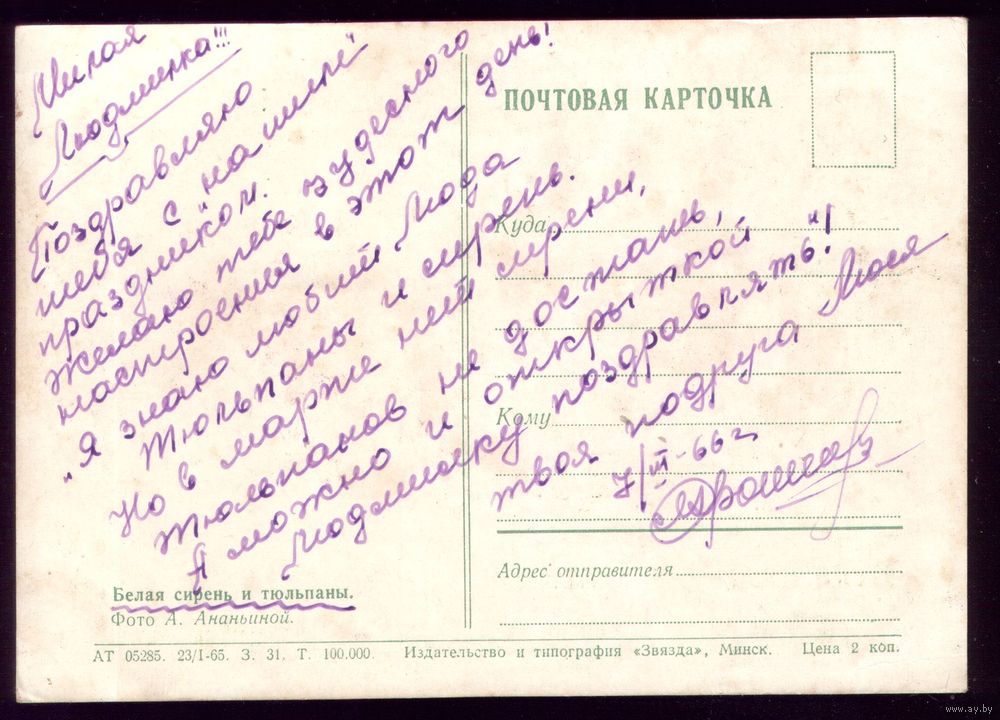 Милая
Людмилка!!!
Поздравляю
тебя с "нашим"
праздником.
Желаю тебе чудесного
настроения в этот день!
"Я знаю любит Люда
Тюльпаны и сирень.
Но в марте нет сирени,
Тюльпанов не достать,
А можно и открыткой
Людмилку поздравлять"!
твоя подруга Люся
7/III-66 г.
ПОЧТОВАЯ КАРТОЧКА
Куда
Кому
Адрес отправителя
Белая сирень и тюльпаны.
Фото А. Ананьиной.
АТ 05285. 23/I-65. З. 31. Т. 100.000. Издательство и типография «Звязда», Минск. Цена 2 коп.
www.ay.by